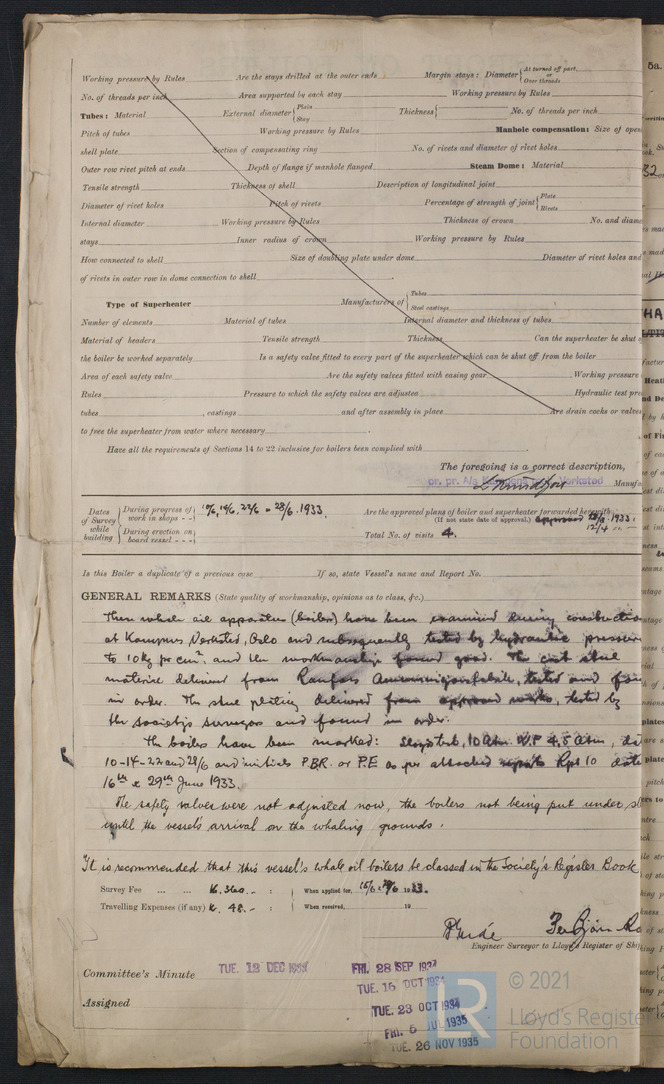 Working pressure by Rules Are the stays drilled at the outer ends Margin stays: Diameter { At turned off part, or Over threads
No. of threads per inch Area supported by each stay Working pressure by Rules
Tubes: Material External diameter { Plain Stay Thickness { No. of threads per inch
Pitch of tubes Working pressure by Rules Manhole compensation: Size of open
shell plate Section of compensating ring No. of rivets and diameter of rivet holes
Outer row rivet pitch at ends Depth of flange if manhole flanged Steam Dome: Material
Tensile strength Thickness of shell Description of longitudinal joint
Diameter of rivet holes Pitch of rivets Percentage of strength of joint { Plate Rivets
Internal diameter Working pressure by Rules Thickness of crown No. and diame
stays Inner radius of crown Working pressure by Rules
How connected to shell Size of doubling plate under dome Diameter of rivet holes and
of rivets in outer row in dome connection to shell
Type of Superheater Manufacturers of { Tubes Steel castings
Number of elements Material of tubes Internal diameter and thickness of tubes
Material of headers Tensile strength Thickness Can the superheater be shut
the boiler be worked separately Is a safety valve fitted to every part of the superheater which can be shut off from the boiler
Area of each safety valve Are the safety valves fitted with easing gear Working pressure
Rules Pressure to which the safety valves are adjusted Hydraulic test pre
tubes , castings and after assembly in place Are drain cocks or valves
to free the superheater from water where necessary
Have all the requirements of Sections 14 to 22 inclusive for boilers been complied with
The foregoing is a correct description,
pr. pr. Verksted Manufa
Dates of Survey while building { During progress of work in shops - - 28/6. 1933. Are the approved plans of boiler and superheater forwarded herewith 1933.
(If not state date of approval.) approved 12/4
During erection on board vessel - - - Total No. of visits 4.
Is this Boiler a duplicate of a previous case If so, state Vessel's name and Report No.
GENERAL REMARKS (State quality of workmanship, opinions as to class, &c.)
These whale oil apparatus (boilers) have been examined during construction
at Kampens Verksted, Oslo and subsequently tested by hydraulic pressure
to 10 kg pr cm². and the workmanship found good. The cast steel
material delivered from Raufoss Ammunisjonsfabrikk, tested and fou
in order. The steel plating delivered from approved works, tested by
the Society's surveyors and found in order.
The boilers have been marked: Lloyd's test, 10 Atm. W.P 4,5 Atm,
10-14-22 and 28/6 and initials P.B.R. or P.E as per attached Rpt 10 date
16th & 29th June 1933.
The safety valves were not adjusted now, the boilers not being put under
until the vessel's arrival on the whaling grounds.
It is recommended that this vessel's whale oil boilers be classed in the Society's Register Book
Survey Fee ... ... K. 360.- : When applied for, 1933.
Travelling Expenses (if any) K. 48.- : When received, 19
Engineer Surveyor to Lloyd's Register of Shi
Committee's Minute TUE. 12 DEC 1933 FRI. 28 SEP 1934
TUE. 16 OCT 1934
Assigned TUE. 23 OCT 1934
FRI. 5 JUL 1935
TUE. 26 NOV 1935
LR © 2021
Lloyd's Register
Foundation